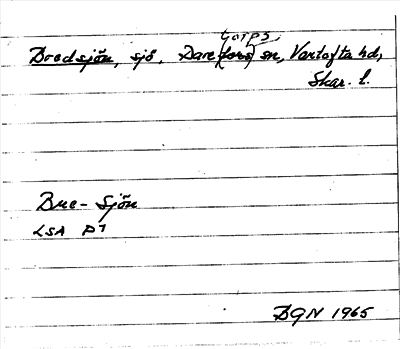 torps
Bredsjön, sjö, Dare(fors) sn, Vartofta hd,
Skar. l.
Bre-Sjön
LSA P7
BGN 1965